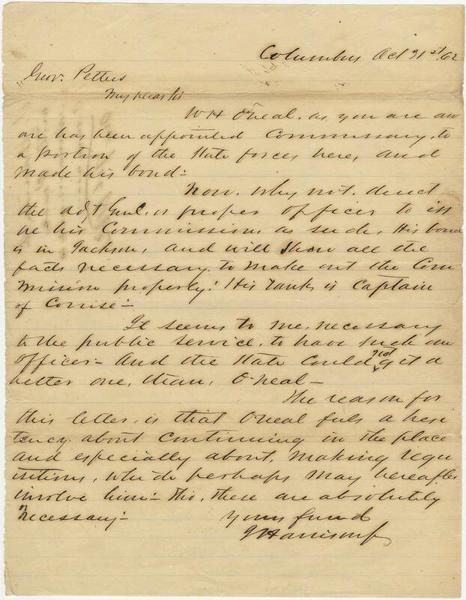 Columbus Oct 31st/62
Gov: Pettus
My dear Sir
W H O'Neal. as you are aw
are has been appointed Commissary. to
a portion of the State forces here, and
made his bond:
Now. why not. direct
the adjt Genl. or proper officer to iss
ue his Commission as such. His bond
is in Jackson, and will show all the
facts necessary. to make out the Com
mission properly: His rank is Captain
of Corrise -
It seems to me. necessary
to the public service. to have such an
officer - And the State could not get a
better one, than, O'neal -
The reason for
this letter. is that O'neal feels a hesi
tency about continuing in the place
and especially about, making requ
isitions, which perhaps may hereafter
involve him - tho, these are absolutely
necessary -
Yours friend
J Harrison